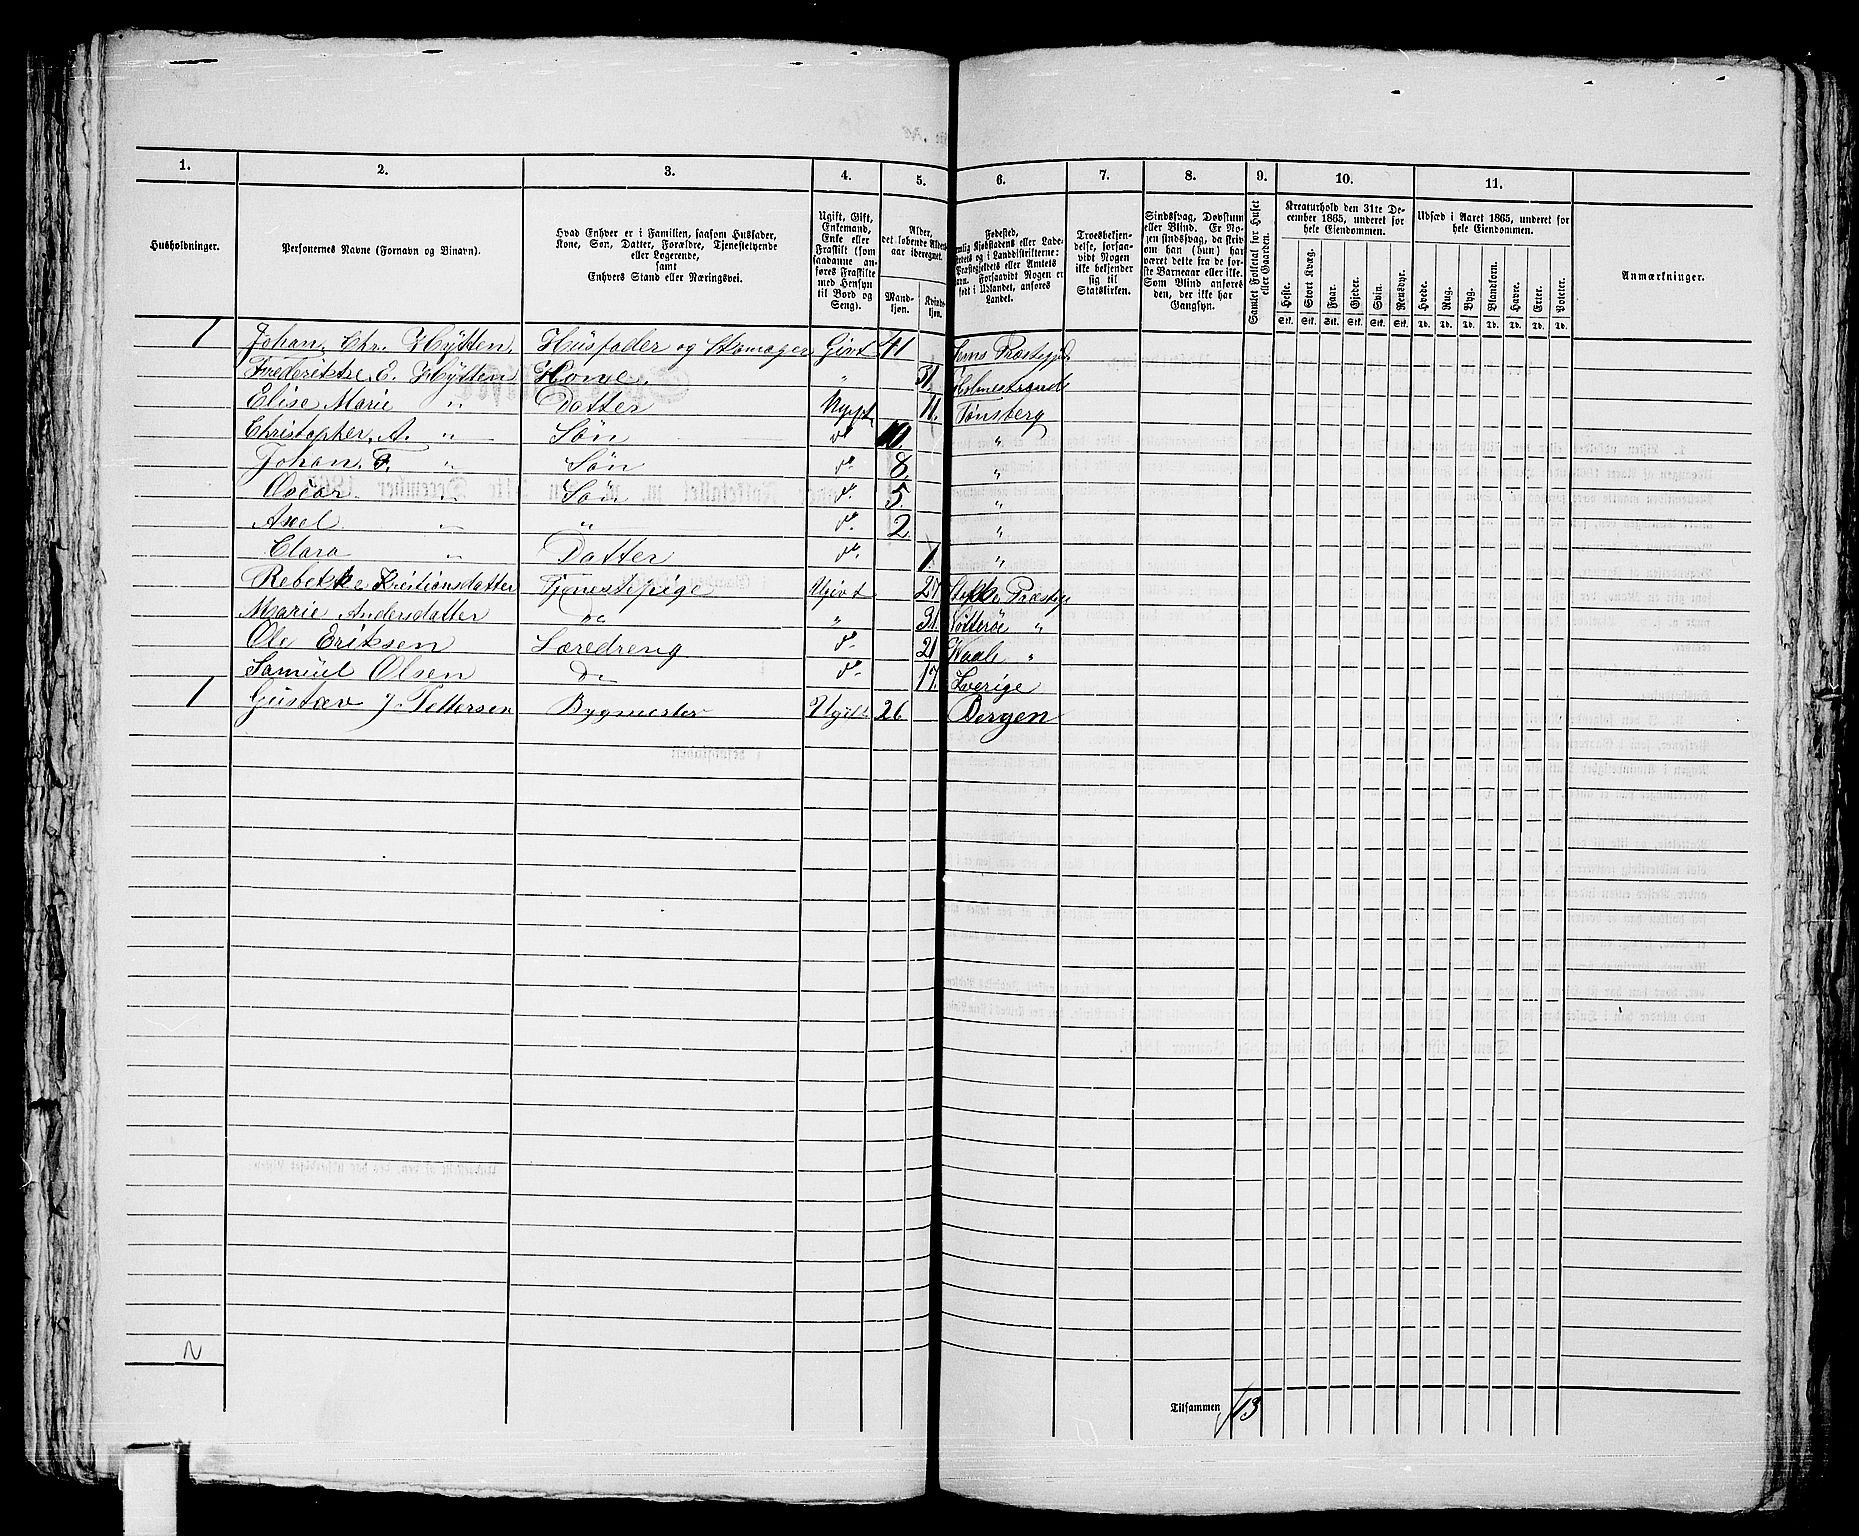 1. 2. 3. 4. 5. 6. 7. 8. 9. 10. 11.
Husholdninger.
Personernes Navne (Fornavn og Binavn).
Hvad Enhver er i Familien, saasom Husfader,
Kone, Søn, Datter, Forældre, Tjenestetyende
eller Logerende,
samt
Enhvers Stand eller Næringsvei.
Ugift, Gift,
Enkemand,
Enke eller
Fraskilt (som
saadanne an-
føres Fraskilte
med Hensyn
til Bord og
Seng).
Alder,
det løbende Alders-
aar iberegnet.
Mand-
kjøn.
Kvinde-
kjøn.
Fødested,
Kjøbstadens eller Lade-
stedets og i Landdistrikterne:
Præstegjeldets eller Amtets
Navn. Forsaavidt Nogen er
født i Udlandet, anføres
Landet.
Troesbekjen-
delse, forsaa-
vidt Nogen
ikke bekjender
sig til
Statskirken.
Sindssvag, Døvstum
eller Blind. Er No-
gen sindssvag, da skriv
om han (hun) har
været dette fra de før-
ste Barneaar eller ikke.
Som Blind anføres
den, der ikke har
Gangsyn.
Samlet Folketal for Huset
eller Gaarden.
Kreaturhold den 31te De-
cember 1865, underet for
hele Eiendommen.
Heste. Stort Kvæg. Faar. Gjeder. Svin. Rensdyr.
Stk. Stk. Stk. Stk. Stk. Stk.
Udsæd i Aaret 1865, underet for
hele Eiendommen.
Hvede. Rug. Byg. Blandkorn. Havre. Erter. Poteter.
Td. Td. Td. Td. Td. Td. Td.
Anmærkninger.
1 Johan Chr. Hÿtten. Hüsfader og Skomager Givt 41 Sems Præstegjd
Frederikke E. Hÿtten Kone. " 31. Holmestrand
Elise Marie " Datter Ugift 11. Tønsberg
Christopher. A. " Søn do 10. "
Johan. F. " Søn do 8. "
Oscar. " Søn do 5. "
Axel " " do. 2. "
Clara " Datter do. 1. "
Rebekke Kristiansdatter Tjenestepige Ugivt 27 Stokke Præsteg
Marie Andersdatter do " 31. Nøtterøe "
Ole Eriksen Læredreng do 21 Waale "
Samuel Olsen do do 17. Sverige
1 Gustav J. Pettersen Bygmester Ugift 26 Bergen
2
Tilsammen 13